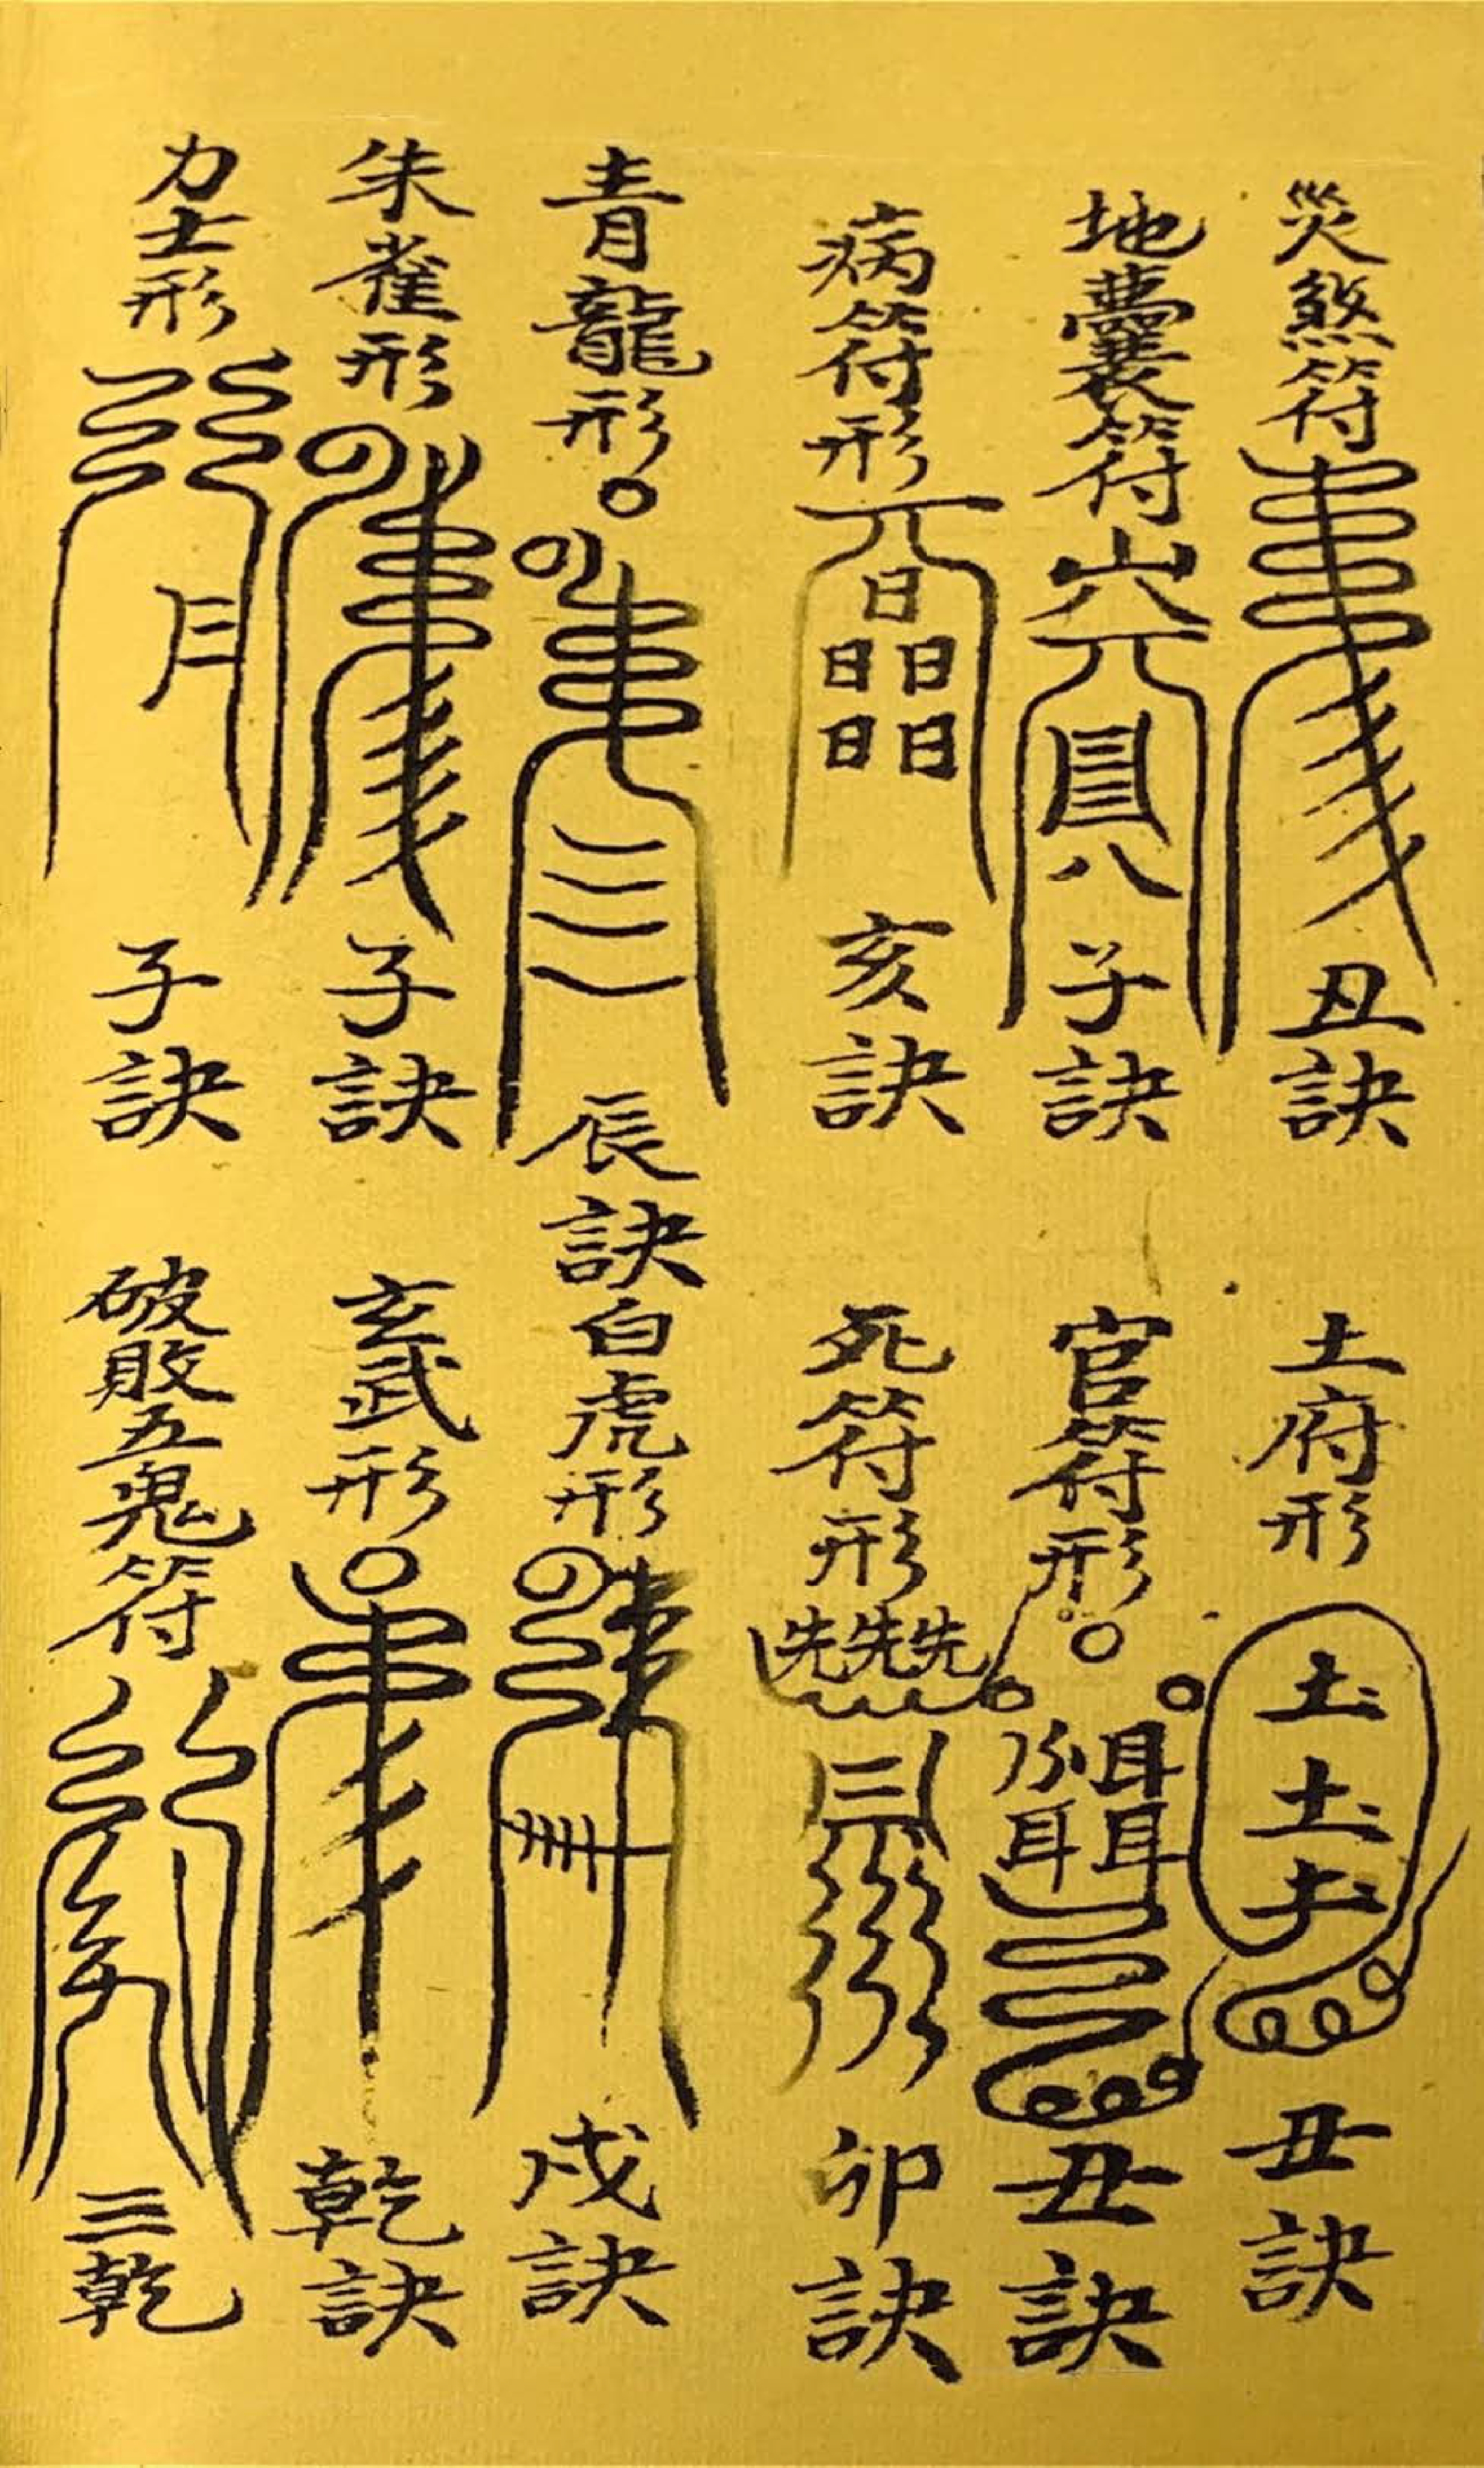 災煞符
丑訣
土府形
土土土
丑訣
地囊符
山
八
子訣
官符形
耳耳耳
丑訣
病符形
日日日日日
亥訣
死符形
先先先
三
卯訣
青龍形
辰訣
白虎形
戌訣
朱雀形
子訣
玄武形
乾訣
力士形
月
子訣
破敗五鬼符
三乾